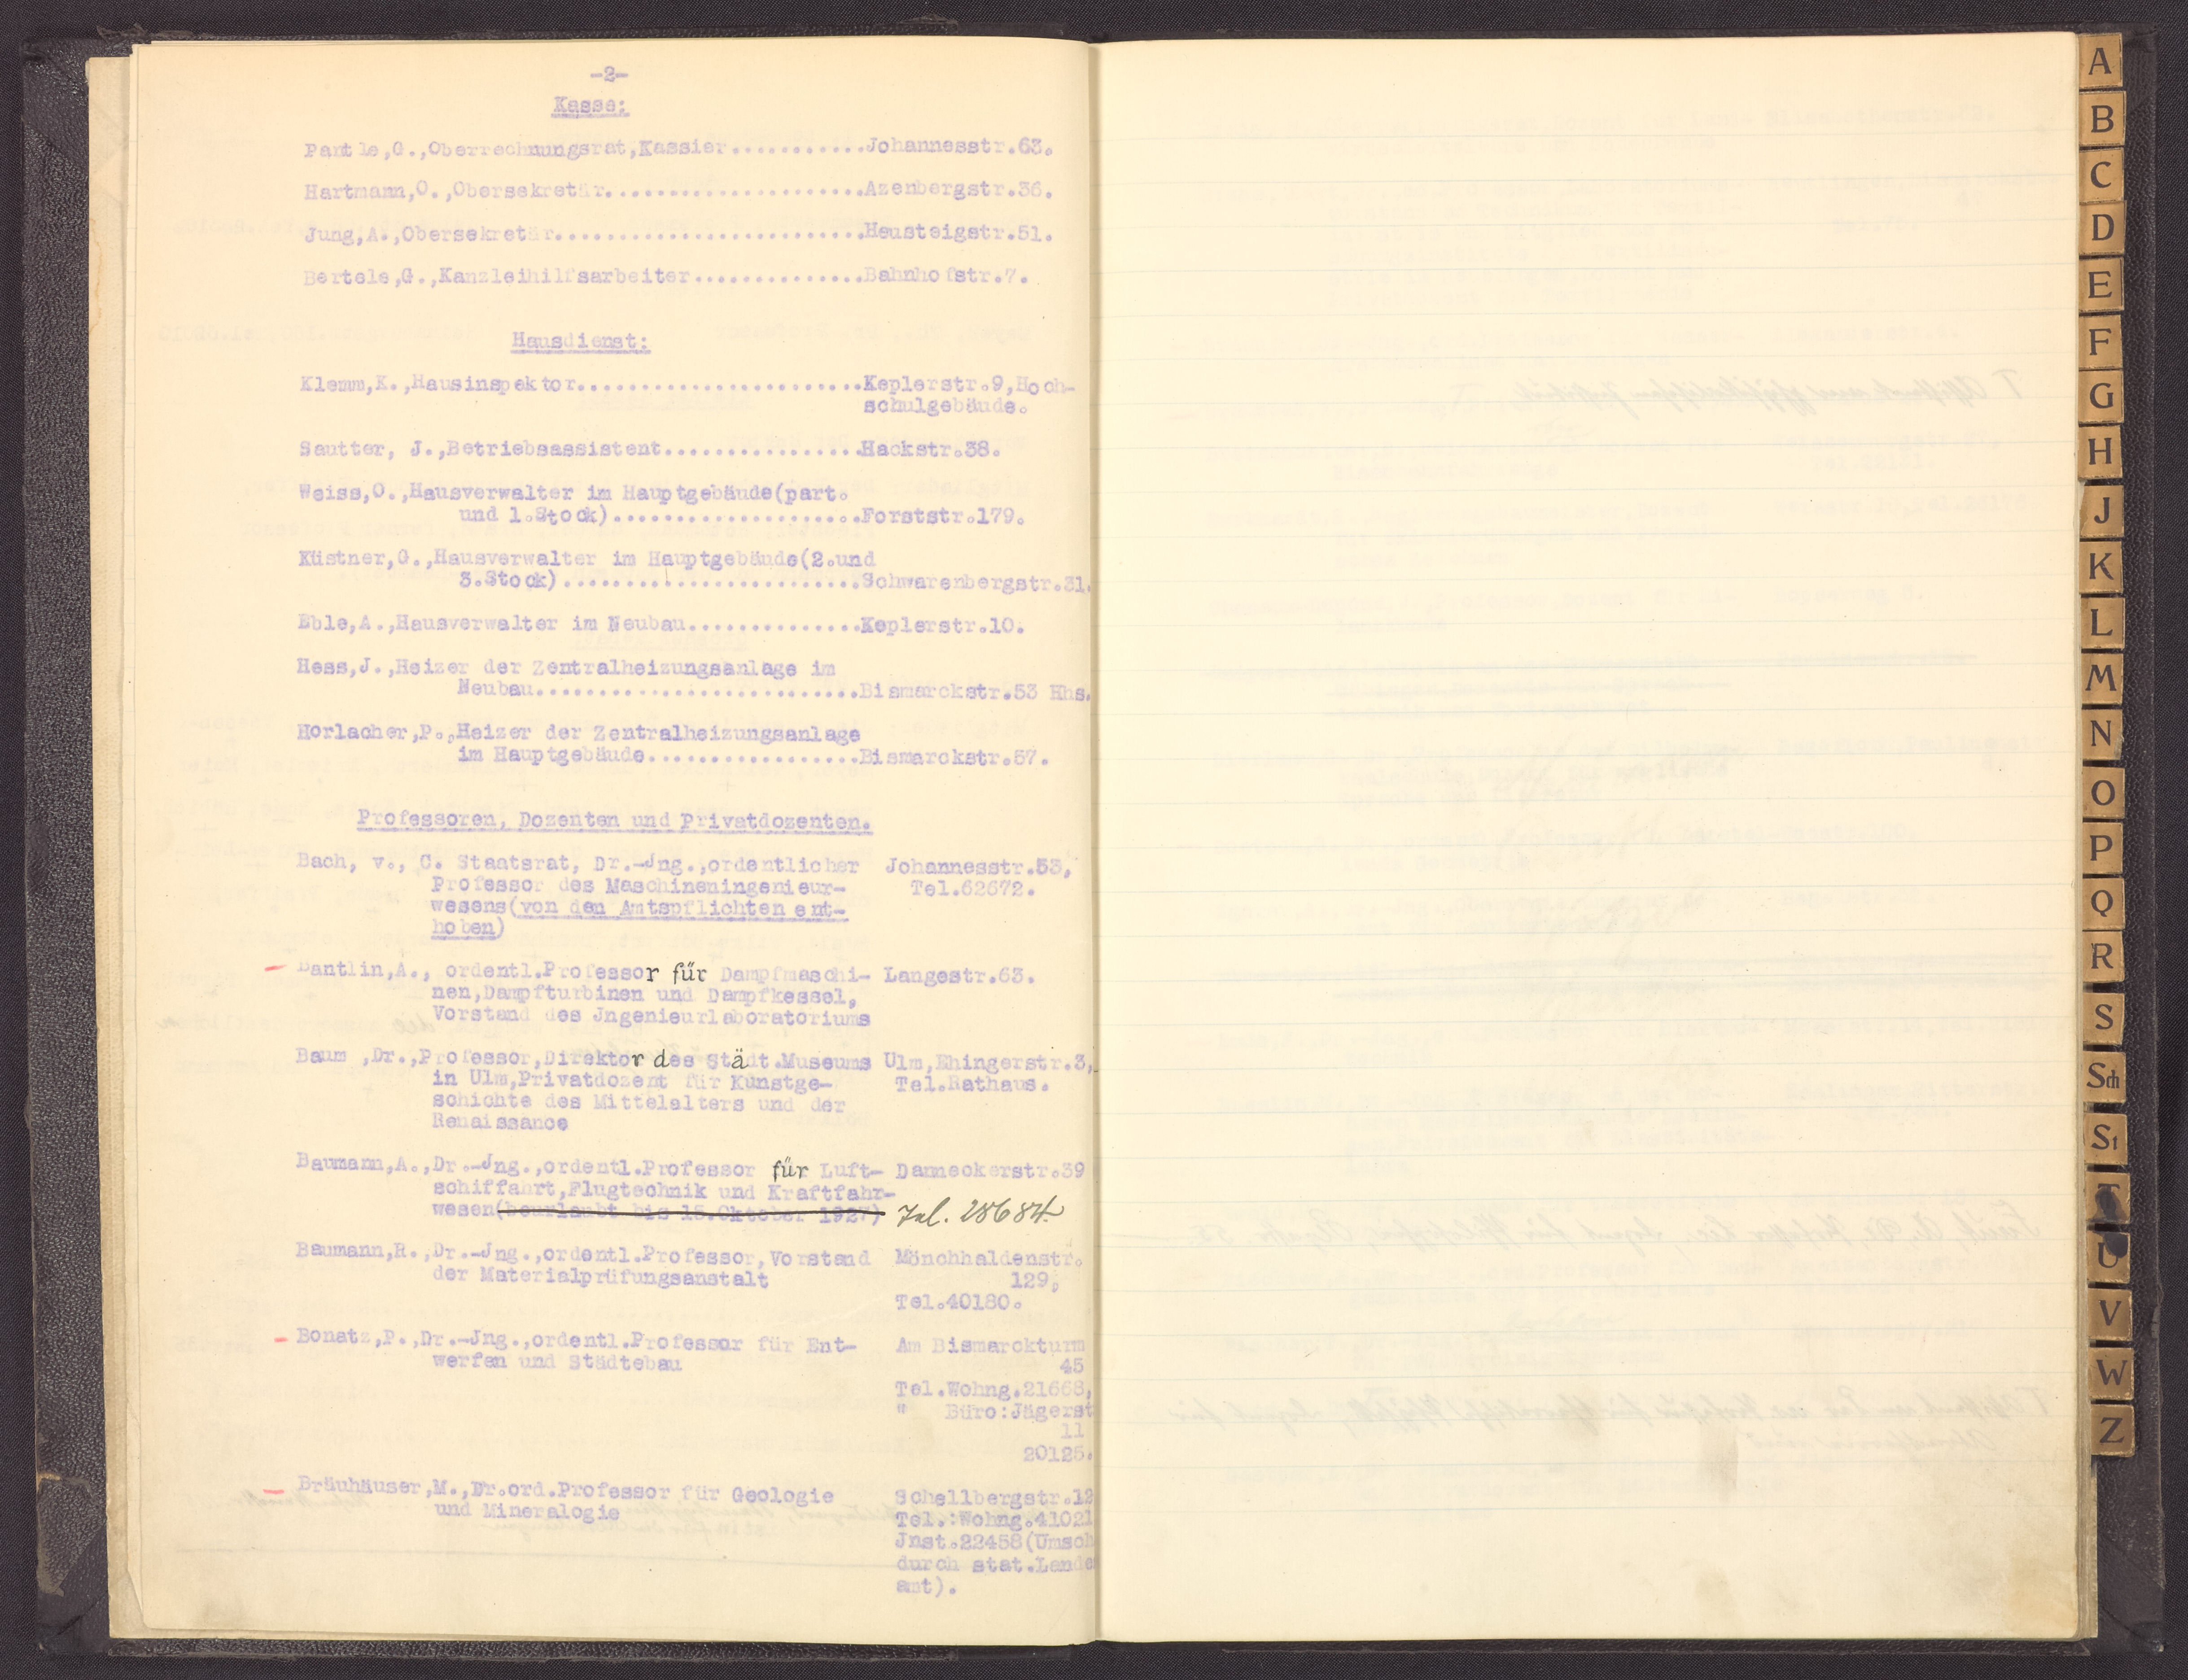 -2-
Kasse:
Pantle,G.,Oberrechnungsrat,Kassier...........Johannesstr.63.
Hartmann,O.,Obersekretär.....................Azenbergstr.36.
Jung,A.,Obersekretär.........................Heusteigstr.51.
Bertele,G.,Kanzleihilfsarbeiter..............Bahnhofstr.7.
Hausdienst:
Klemm,K.,Hausinspektor.......................Keplerstr.9,Hoch-
schulgebäude.
Sautter, J.,Betriebsassistent................Hackstr.38.
Weiss,O.,Hausverwalter im Hauptgebäude(part.
und 1.Stock)....................Forststr.179.
Küstner,G.,Hausverwalter im Hauptgebäude(2.und
3.Stock)........................Schwarenbergstr.31.
Eble,A.,Hausverwalter im Neubau..............Keplerstr.10.
Hess,J.,Heizer der Zentralheizungsanlage im
Neubau..........................Bismarckstr.53 Hhs.
Horlacher,P.,Heizer der Zentralheizungsanlage
im Hauptgebäude.................Bismarckstr.57.
Professoren, Dozenten und Privatdozenten.
Bach, v., C. Staatsrat, Dr.-Jng.,ordentlicher Johannesstr.53,
Professor des Maschineningenieur- Tel.62672.
wesens(von den Amtspflichten ent-
hoben)
Bantlin,A., ordentl.Professor für Dampfmaschi- Langestr.63.
nen,Dampfturbinen und Dampfkessel,
Vorstand des Jngenieurlaboratoriums
Baum ,Dr.,Professor,Direktor des Städt.Museums Ulm,Ehingerstr.3,
in Ulm,Privatdozent für Kunstge- Tel.Rathaus.
schichte des Mittelalters und der
Renaissance
Baumann,A.,Dr.-Jng.,ordentl.Professor für Luft- Danneckerstr.39
schiffahrt,Flugtechnik und Kraftfahr-
wesen(beurlaubt bis 15.Oktober 1927) Tel. 28684.
Baumann,R.,Dr.-Jng.,ordentl.Professor,Vorstand Mönchhaldenstr.
der Materialprüfungsanstalt 129,
Tel.40180.
Bonatz,P.,Dr.-Jng.,ordentl.Professor für Ent- Am Bismarckturm
werfen und Städtebau 45
Tel.Wohng.21668,
" Büro:Jägerst
11
20125.
Bräuhäuser,M.,Dr.ord.Professor für Geologie Schellbergstr.12
und Mineralogie Tel.:Wohng.41021
Jnst.22458(Umsch
durch stat.Lande
amt).
A
B
C
D
E
F
G
H
J
K
L
M
N
O
P
Q
R
S
Sch
St
T
U
V
W
Z